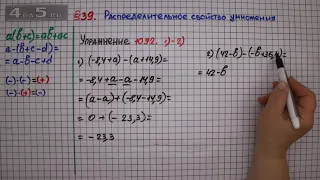 4-5.NET
§39. Распределительное свойство умножения
Упражнение 1092. 1)-2)
a(b+c)=ab+ac
a-(b+c-d)=
=a-b-c+d
(-)·(-)=(+)
(-)·(+)=(-)
1) (-8,4+a)-(a+14,9)=
=-8,4+a-a-14,9=
=(a-a)+(-8,4-14,9)=
=0+(-23,3)=
=-23,3
2) (42-b)-(-b+36,4)=
=42-b